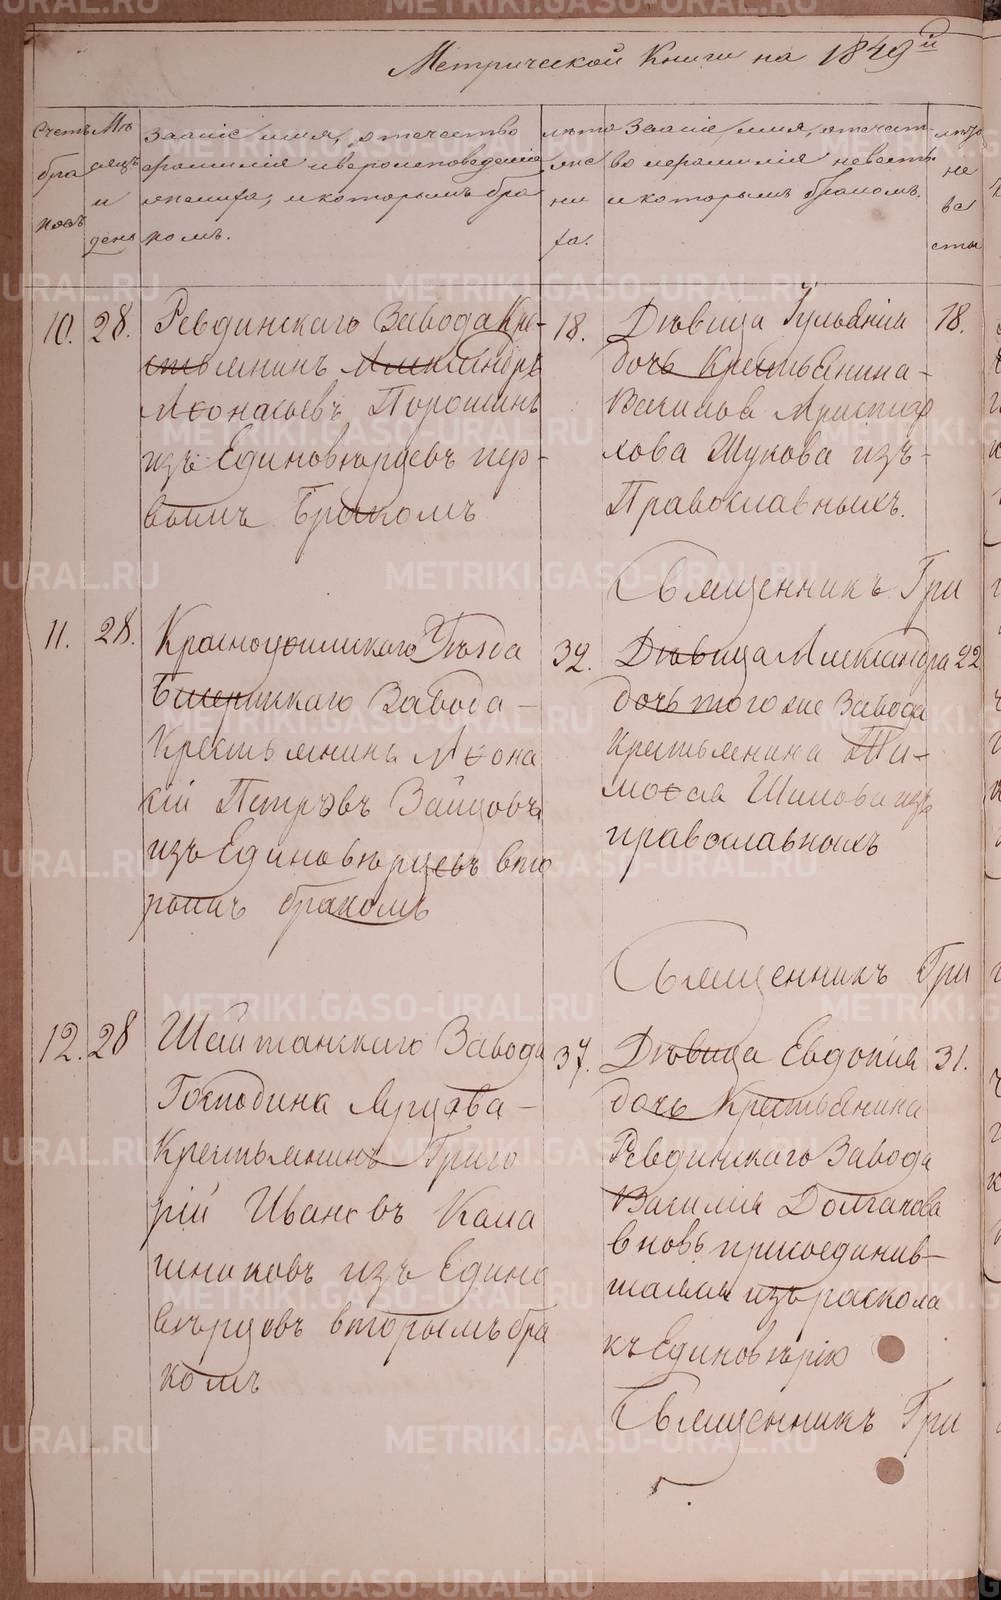 Метрической Книги на 1849й
Счетъ
бра
ковъ
Мѣ
сяцъ
и
день
Званіе имя, отечество
фамилія и вѣроисповеданіе
жениха, и которымъ бра
комъ.
лѣта
же
ни
ха.
Званіе имя, отечест-
во и фамилія невесты
и которымъ бракомъ.
лѣта
не
ве
сты
10.
28.
Ревдинскаго Завода Кре-
стьянинъ Александръ
Аѳонасьевъ Порошинъ
изъ Единовѣрцевъ пер-
вымъ бракомъ
18.
Дѣвица Іульянія
дочь Крестьянина-
Василья Аристар
хова Щукова изъ-
Православныхъ.
18.
Священникъ Гри
11.
28.
Красноуфимскаго Уѣзда
Бисертскаго Завода-
Крестьянинъ Аѳона
сій Петровъ Зайцовъ
изъ Единовѣрцевъ вто
рымъ бракомъ
32.
Дѣвица Александра
дочь того же Завода
крестьянина Ти-
моѳея Шилова изъ
православныхъ
22
Священникъ Гри
12.
28
Шайтанскаго Завода
Господина Ярцова-
Крестьянинъ Григо
рій Ивановъ Кала
шниковъ изъ Едино
вѣрцовъ вторымъ бра
комъ
37.
Дѣвица Евдокія
дочь Крестьянина
Ревдинскаго Завода
Василія Долгахова
вновь присоединив-
шаяся изъ раскола
къ Единовѣрію
31.
Священникъ Гри
METRIKI.GASO-URAL.RU